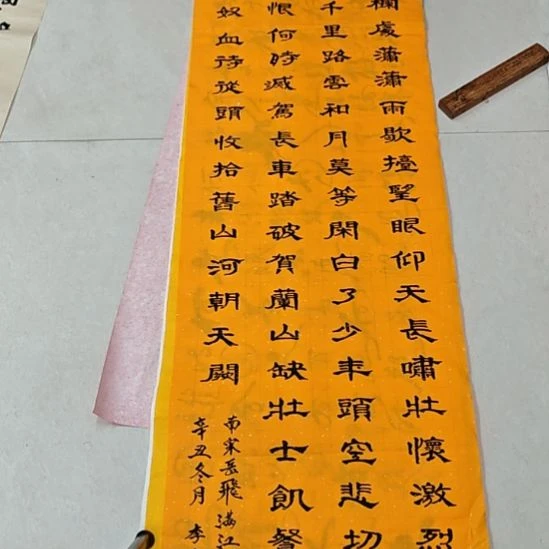 欄處瀟瀟雨歇擡望眼仰天長嘯壯懷激烈
千里路雲和月莫等閑白了少年頭空悲切
恨何時滅駕長車踏破賀蘭山缺壯士飢餐
奴血待從頭收拾舊山河朝天闕
南宋岳飛滿江
辛丑冬月李